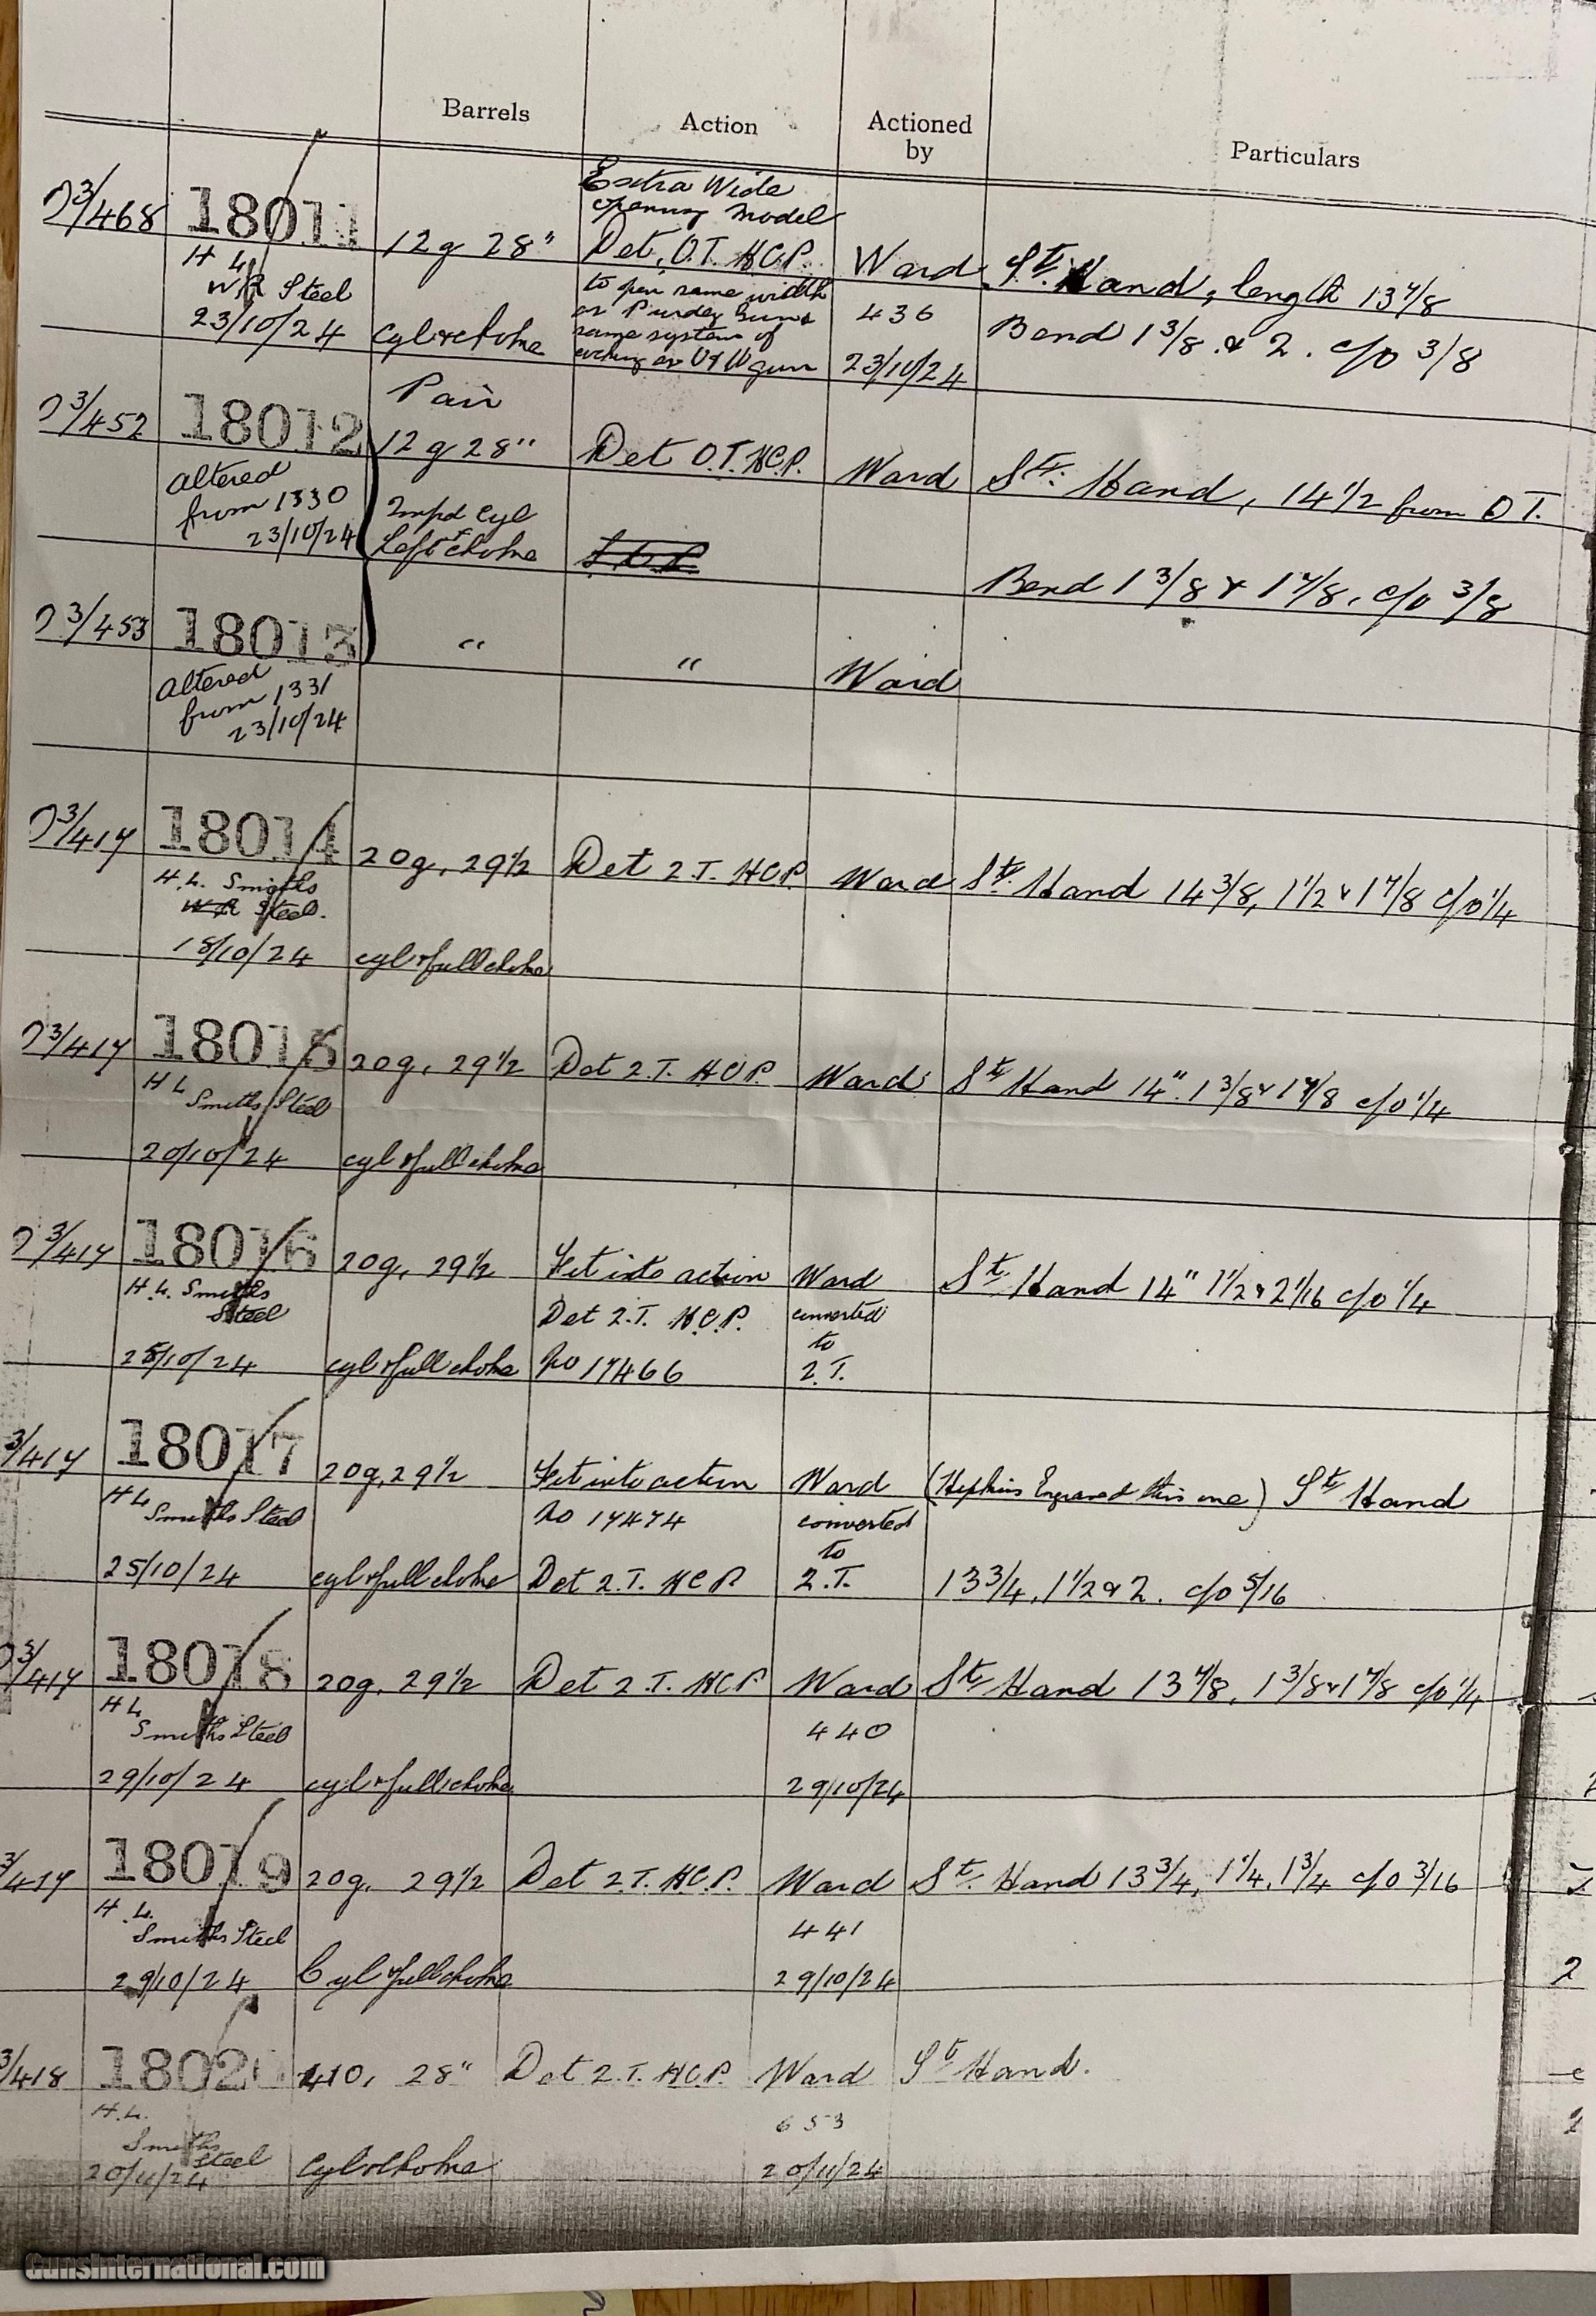 Barrels Action Actioned by Particulars
Extra Wide
opening Model
3/468 18011 12g 28" Det, O.T. H.C.P. Ward St. Hand, length 13 7/8
H L
W R Steel to open same width
as Purdey Guns 436 Bend 1 3/8 & 2. c/o 3/8
23/10/24 cyl & choke same system of
as V & W gun 23/10/24
Pair
3/452 18012 12g 28" Det O.T. H.C.P. Ward St. Hand, 14 1/2 from O T.
Altered
from 1330 Impd Cyl
23/10/24 Left choke Bend 1 3/8 & 1 7/8, c/o 3/8
3/453 18013 " " Ward
Altered
from 1331
23/10/24
3/417 18014 20g, 29 1/2 Det 2.T. H.C.P. Ward St. Hand 14 3/8, 1 1/2 & 1 7/8 c/o 1/4
H.L. Smiths
W R Steel.
18/10/24 cyl & full choke
3/417 18015 20g, 29 1/2 Det 2.T. H.C.P. Ward St. Hand 14". 1 3/8 & 1 7/8 c/o 1/4
H L
Smiths Steel
20/10/24 cyl & full choke
3/417 18016 20g, 29 1/2 Fit into action Ward St. Hand 14" 1 1/2 & 2 1/16 c/o 1/4
H.L. Smiths
Steel Det 2.T. H.C.P. converted
to
25/10/24 cyl & full choke No 17466 2.T.
3/417 18017 20g, 29 1/2 Fit into action Ward (Hopkins Engraved this one) St. Hand
H L
Smiths Steel No 17474 converted
to
25/10/24 cyl & full choke Det 2.T. H.C.P. 2.T. 13 3/4, 1 1/2 & 2. c/o 5/16
3/417 18018 20g, 29 1/2 Det 2.T. H.C.P. Ward St. Hand 13 7/8, 1 3/8 & 1 7/8 c/o 1/4
H L
Smiths Steel 440
29/10/24 cyl & full choke 29/10/24
3/417 18019 20g, 29 1/2 Det 2.T. H.C.P. Ward St. Hand 13 3/4, 1 1/4, 1 3/4 c/o 3/16
H.L.
Smiths Steel 441
29/10/24 Cyl & full choke 29/10/24
3/418 18020 410, 28" Det 2.T. H.C.P. Ward St. Hand.
H.L.
Smiths
Steel 653
20/11/24 Cyl & choke 20/11/24
GunsInternational.com